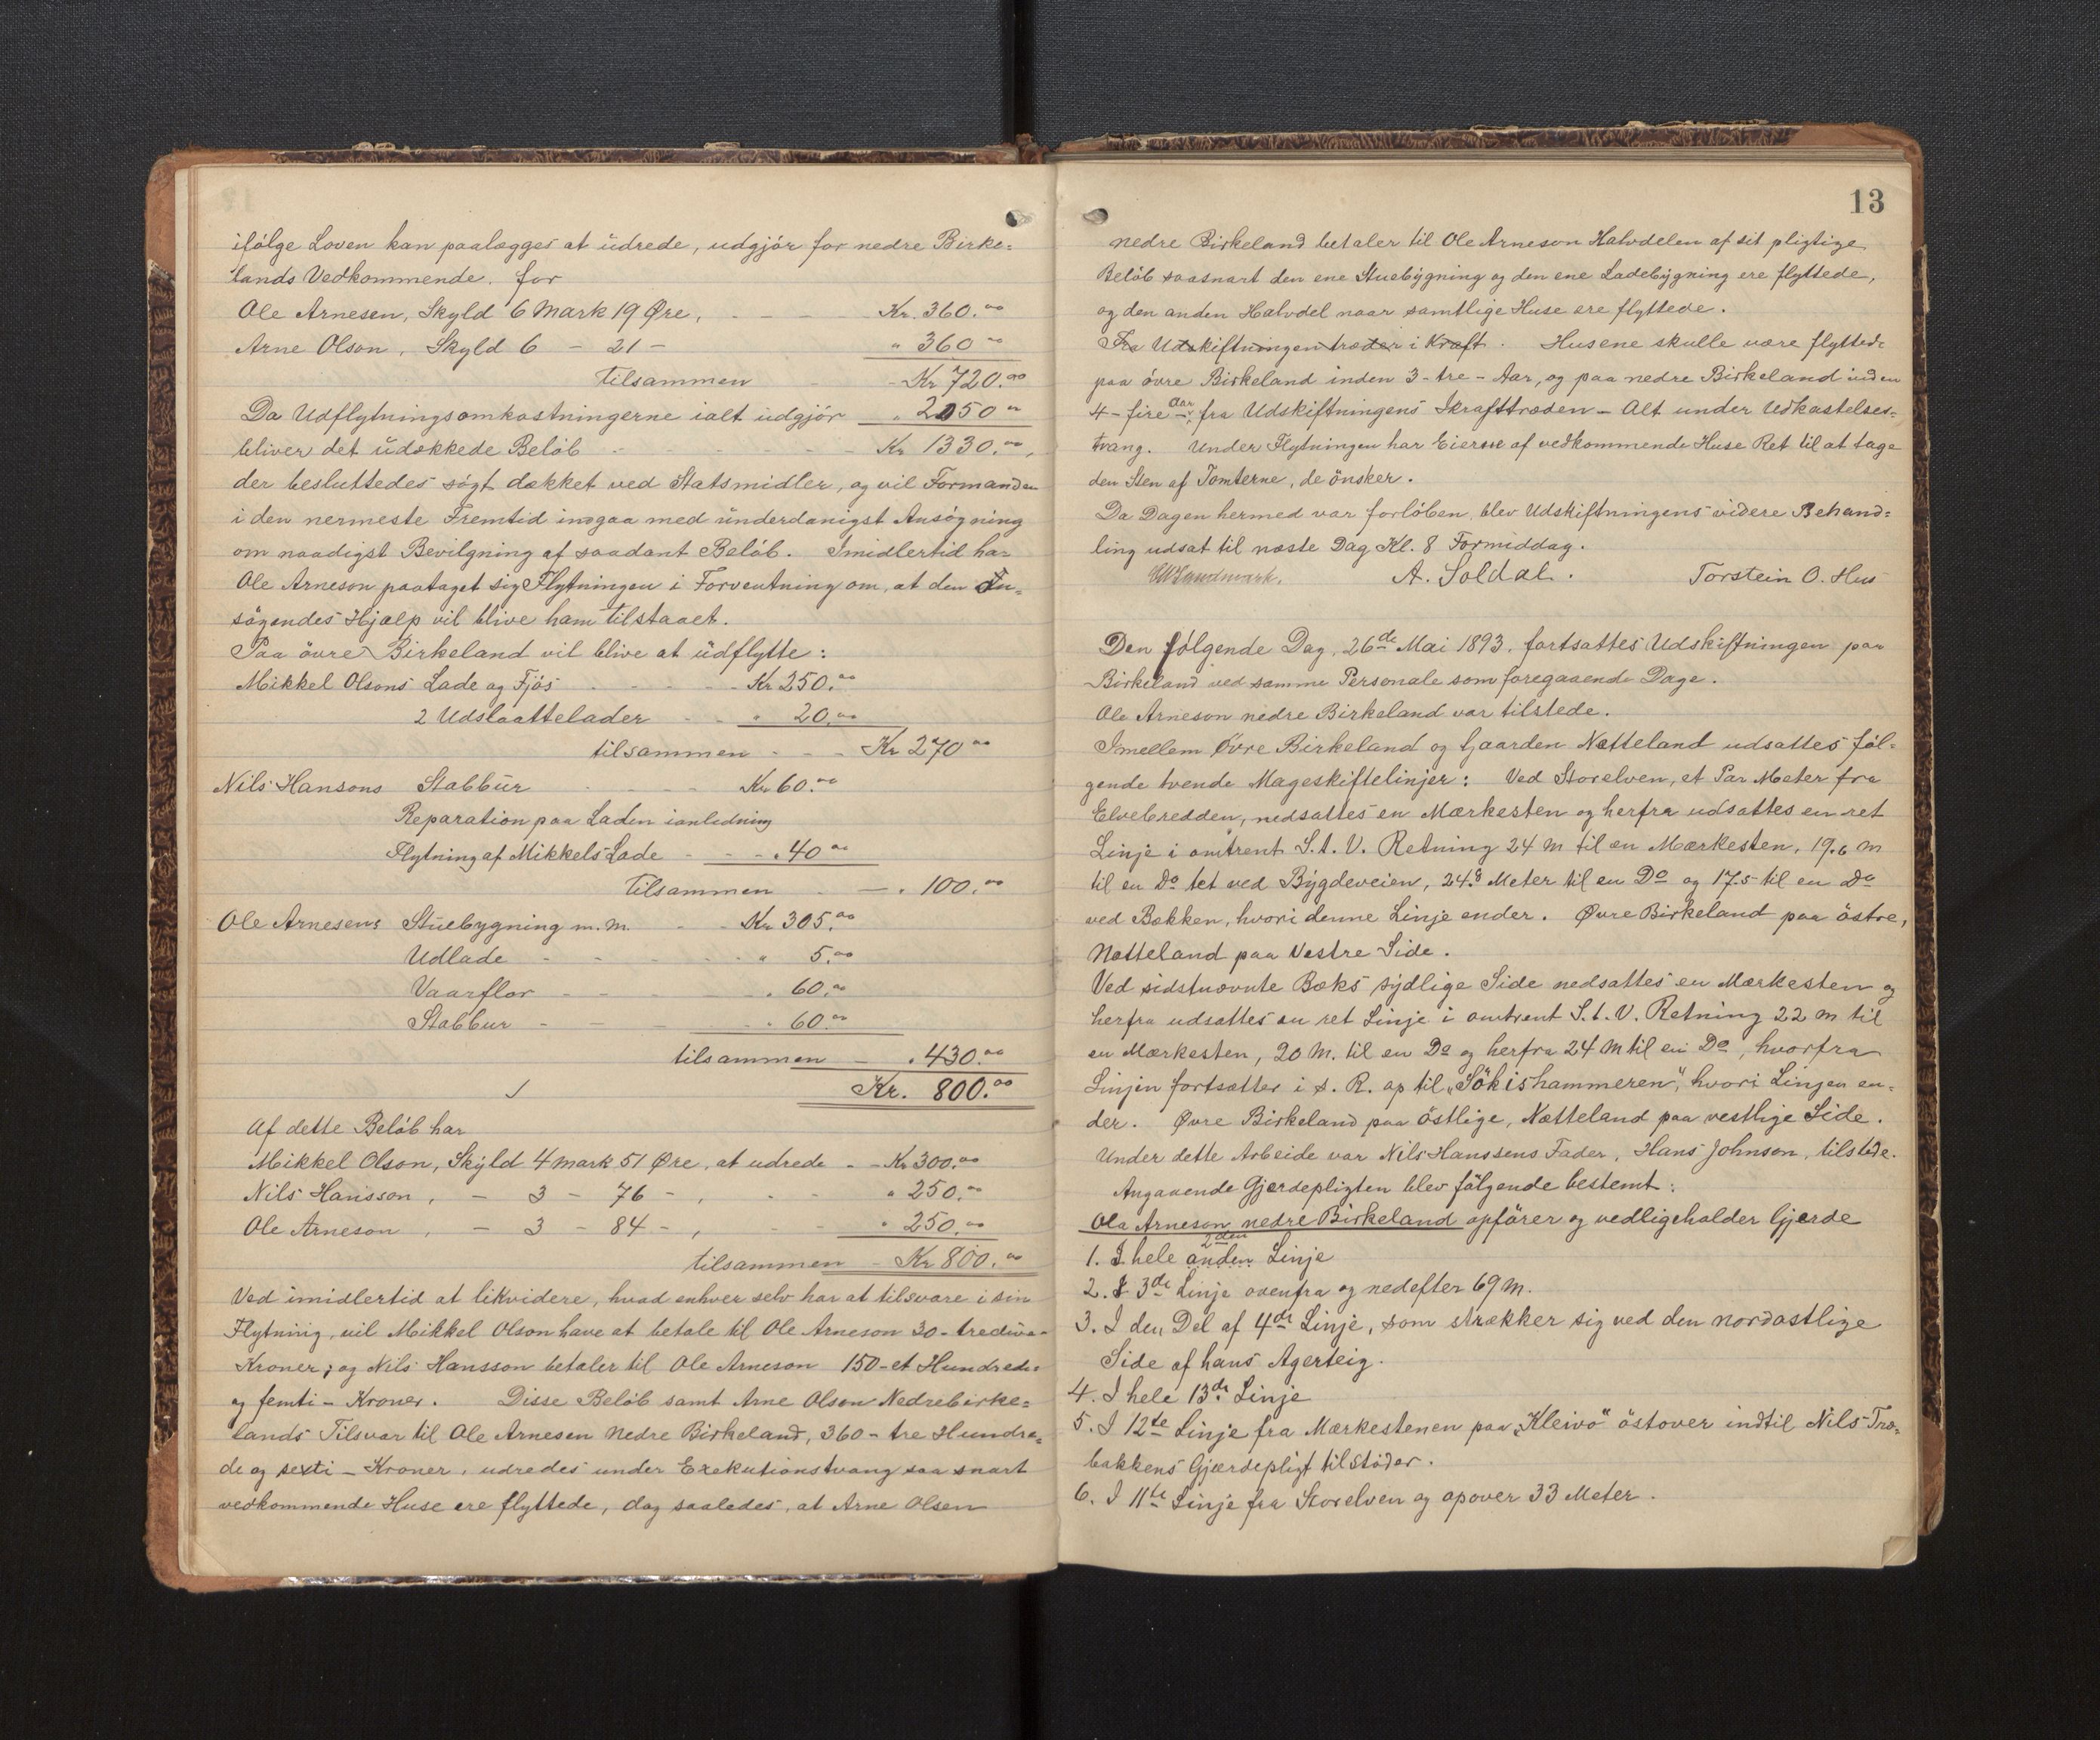 ifölge Loven kan paalægges at üdrede, udgjör for nedre Birke=
lands Vedkommende. for
Ole Arnesen, Skyld 6 Mark 19 Øre, - - - Kr. 360.00
Arne Olson, Skyld 6 - 21 - " 360 00
Tilsammen - Kr 720.00
Da Udflytningsomkostningerne ialt üdgjör " 2050 00
bliver det üdækkede Belöb - - - - - - Kr 1330.00,
der besluttedes sögt dækket ved Statsmidler, og vil Formanden
i den nermeste Fremtid indgaa med ünderdanigst Ansögning
om naadigst Bevilgning af saadant Belöb. Imidlertid har
Ole Arneson paataget sig Flytningen i Forventning om, at den An=
sögendes Hjælp vil blive ham tilstaaet.
Paa övre Birkeland vil blive at üdflytte:
Mikkel Olsons Lade og Fjös - - - - Kr 250.00
2 Udslaattelader - - " 20.00
tilsammen - - - Kr 270 00
Nils Hansons Stabbür - - - - Kr 60.00
Reparation paa Laden ianledning
Flytning af Mikkels Lade - - - " 40 00
Tilsammen - - " 100.00
Ole Arnesens Stüebygning m.m. - - Kr 305.00
Udlade - - - - - - " 5.00
Vaarflor - - - - " 60.00
Stabbur - - - - " 60.00
tilsammen - " 430.00
Kr. 800.00
Af dette Belöb har
Mikkel Olson, Skÿld 4 Mark 51 Øre, at udrede - - Kr 300.00
Nils Hansson, - 3 - 76 - , - - " 250.00
Ole Arneson, - 3 - 84 - , - - " 250.00
tilsammen - Kr 800.00
Ved imidlertid at likvidere, hvad enhver selv har at tilsvare i sin
Flytning, vil Mikkel Olson have at betale til Ole Arneson 30 - tredive -
Kroner, og Nils Hansson betaler til Ole Arneson 150 - et Hundrede
og femti - Kroner. Disse Belöb samt Arne Olson Nedrebirke=
lands Tilsvar til Ole Arnesen Nedre Birkeland, 360 - tre Hundre=
de og sexti - Kroner, udredes under Exekutionstvang saa snart
vedkommende Huse ere flyttede, dog saaledes, at Arne Olsen
13
nedre Birkeland betaler til Ole Arneson Halvdelen af sit pligtige
Belöb saasnart den ene Stuebÿgning og den ene Ladebÿgning ere flyttede,
og den anden Halvdel naar samtlige Huse ere flyttede.
Fra Udskiftningen træder i Kraft. Husene skulle være flyttede
paa övre Birkeland inden 3 - tre - Aar, og paa nedre Birkeland inden
4 - fire Aar - fra Udskiftningens Ikrafttræden - Alt under Udkastelses=
tvang. Under Flytningen har Eierne af vedkommende Huse Ret til at tage
den Sten af Tomterne, de önsker.
Da Dagen hermed var forlöben, blev Udskiftningens videre Behand=
ling udsat til næste Dag Kl. 8 Formiddag.
Landmark. A. Soldal. Torstein O. Hus
Den fölgende Dag, 26de Mai 1893, fortsattes Udskiftningen paa
Birkeland ved samme Personale som foregaaende Dage.
Ole Arneson nedre Birkeland var tilstede.
Imellem Øvre Birkeland og Gaarden Nætteland udsattes föl=
gende tvende Mageskiftelinjer: Ved Storelven, et Par Meter fra
Elvebredden, nedsattes en Mærkesten og herfra udsattes en ret
Linje i omtrent S.t.V. Retning 24 m til en Mærkesten, 19.6 m
til en Do tet ved Bÿgdeveien, 24.8 Meter til en Do og 17.5 til en Do
ved Bækken, hvori denne Linje ender. Øvre Birkeland paa östre,
Nætteland paa Vestre Side.
Ved sidstnævnte Bæks sÿdlige Side nedsattes en Mærkesten og
herfra udsattes en ret Linje i omtrent S.t.V. Retning 22 m til
en Mærkesten, 20 M. til en Do og herfra 24 M til en Do, hvorfra
Linjen fortsætter i s. R. op til „Sökishammeren“, hvori Linjen en=
der. Øvre Birkeland paa östlige, Nætteland paa vestlige Side.
Under dette Arbeide var Nils Hanssens Fader, Hans Johnson, tilstede.
Angaaende Gjerdepligten blev fölgende bestemt:
Ola Arneson nedre Birkeland opförer og vedligeholder Gjerde
1. I hele anden 2den Linje
2. I 3de Linje ovenfra og nedefter 69 m.
3. I den Del af 4de Linje, som strækker sig ved den nordöstlige
Side af hans Agerteig.
4. I hele 13de Linje
5. I 12te Linje fra Mærkestenen paa „Kleivo“ östover indtil Nils Træ=
bakkens Gjærdepligt tilstöder.
6. I 11te Linje fra Storelven og opover 33 Meter.